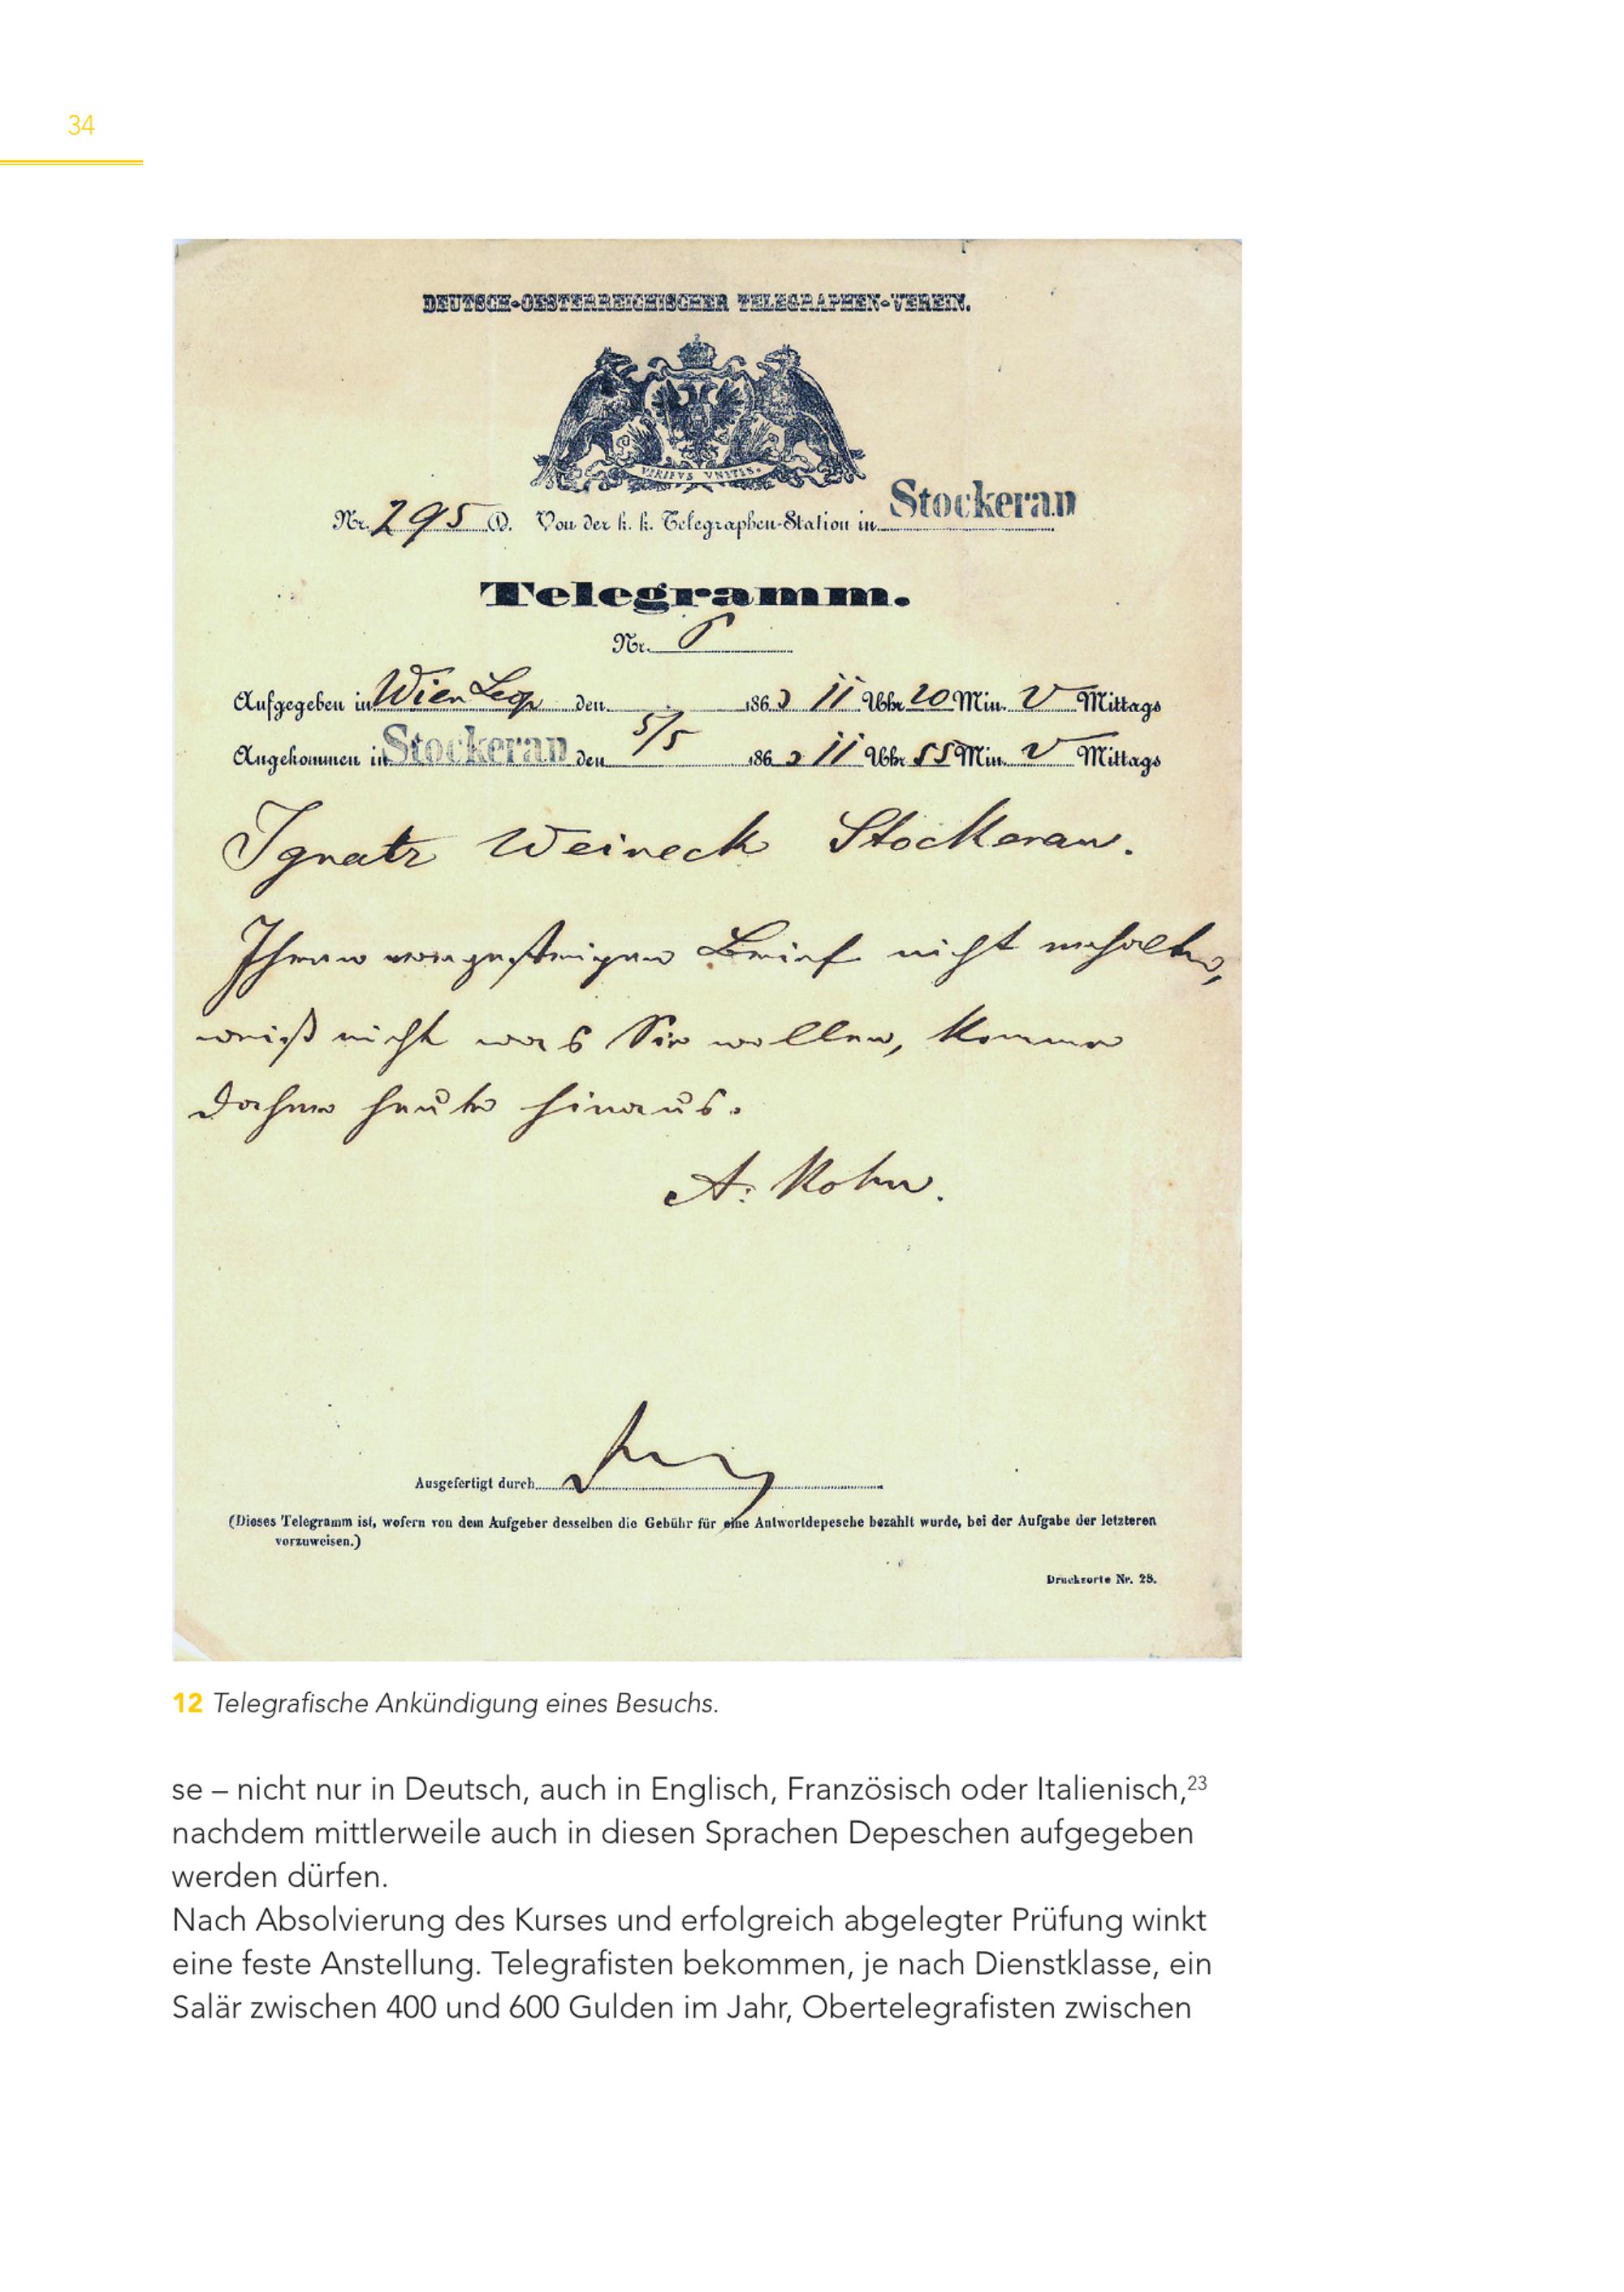 34
DEUTSCH-OESTERREICHISCHER TELEGRAPHEN-VEREIN.
VIRIBVS VNITIS.
Nr. 295 D. Von der k. k. Telegraphen-Station in Stockerau
Telegramm.
Nr.
Aufgegeben in Wien Leop den 1863 11 Uhr 20 Min. V Mittags
Angekommen in Stockerau den 5/5 1863 11 Uhr 55 Min. V Mittags
Ignatz Weineck Stockerau.
Ihren vorgestrigen Brief nicht erhalten,
weiß nicht was Sie wollen, komme
daher heute hinaus.
A. Kohn.
Ausgefertigt durch
(Dieses Telegramm ist, wofern von dem Aufgeber desselben die Gebühr für eine Antwortdepesche bezahlt wurde, bei der Aufgabe der letzteren
vorzuweisen.)
Drucksorte Nr. 28.
12 Telegrafische Ankündigung eines Besuchs.
se – nicht nur in Deutsch, auch in Englisch, Französisch oder Italienisch,23
nachdem mittlerweile auch in diesen Sprachen Depeschen aufgegeben
werden dürfen.
Nach Absolvierung des Kurses und erfolgreich abgelegter Prüfung winkt
eine feste Anstellung. Telegrafisten bekommen, je nach Dienstklasse, ein
Salär zwischen 400 und 600 Gulden im Jahr, Obertelegrafisten zwischen